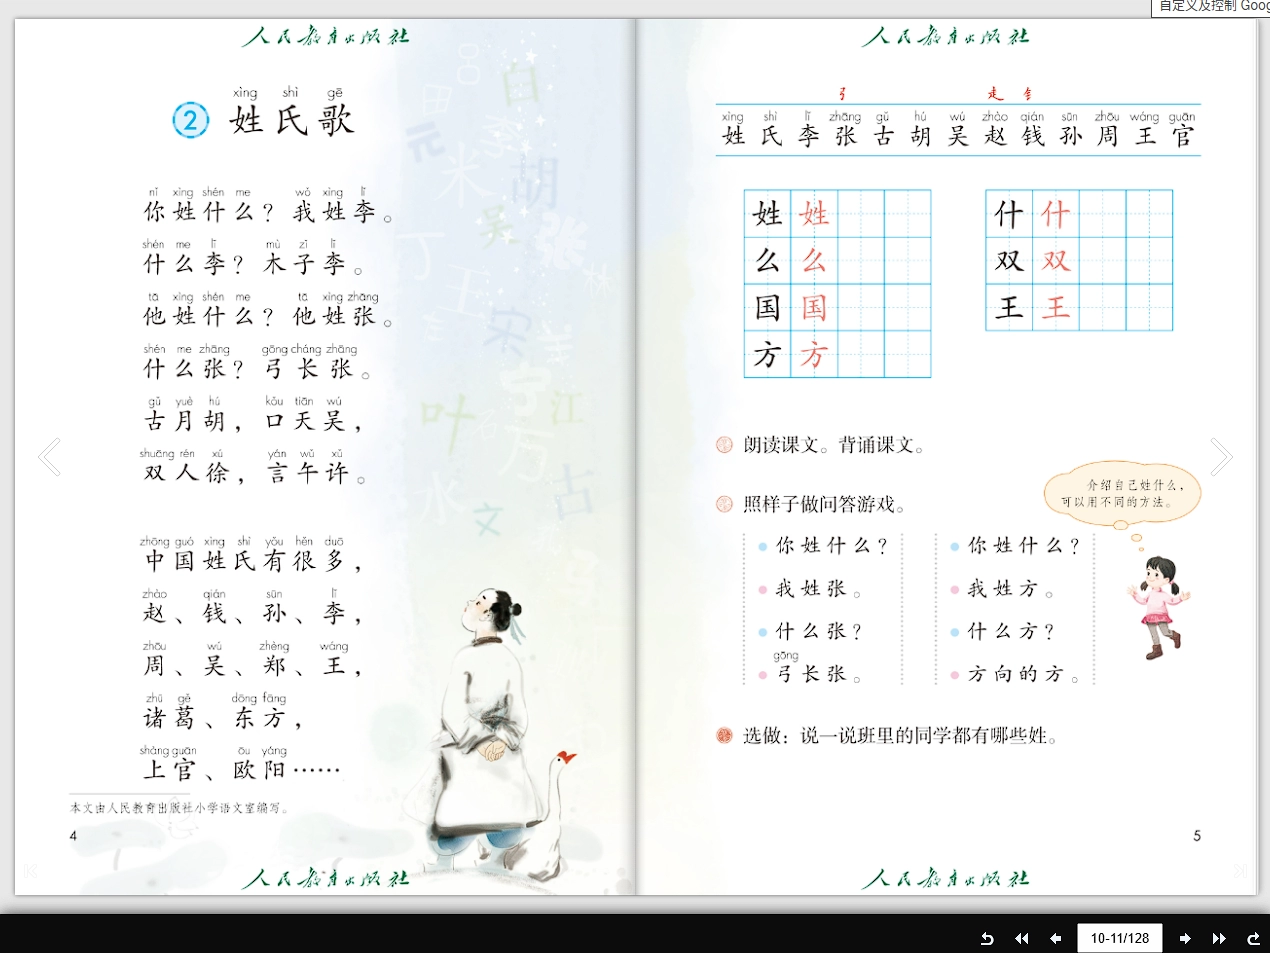 自定义及控制 Goog
人民教育出版社
xìng shì gē
2 姓氏歌
nǐ xìng shén me wǒ xìng lǐ
你姓什么？我姓李。
shén me lǐ mù zǐ lǐ
什么李？木子李。
tā xìng shén me tā xìng zhāng
他姓什么？他姓张。
shén me zhāng gōng cháng zhāng
什么张？弓长张。
gǔ yuè hú kǒu tiān wú
古月胡，口天吴，
shuāng rén xú yán wǔ xǔ
双人徐，言午许。
zhōng guó xìng shì yǒu hěn duō
中国姓氏有很多，
zhào qián sūn lǐ
赵、钱、孙、李，
zhōu wú zhèng wáng
周、吴、郑、王，
zhū gě dōng fāng
诸葛、东方，
shàng guān ōu yáng
上官、欧阳……
本文由人民教育出版社小学语文室编写。
4
人民教育出版社
人民教育出版社
弓 走 钅
xìng shì lǐ zhāng gǔ hú wú zhào qián sūn zhōu wáng guān
姓氏李张古胡吴赵钱孙周王官
姓 姓
么 么
国 国
方 方
什 什
双 双
王 王
朗读课文。背诵课文。
照样子做问答游戏。
你姓什么？
我姓张。
什么张？
gōng
弓长张。
你姓什么？
我姓方。
什么方？
方向的方。
介绍自己姓什么，
可以用不同的方法。
选做：说一说班里的同学都有哪些姓。
5
人民教育出版社
10-11/128